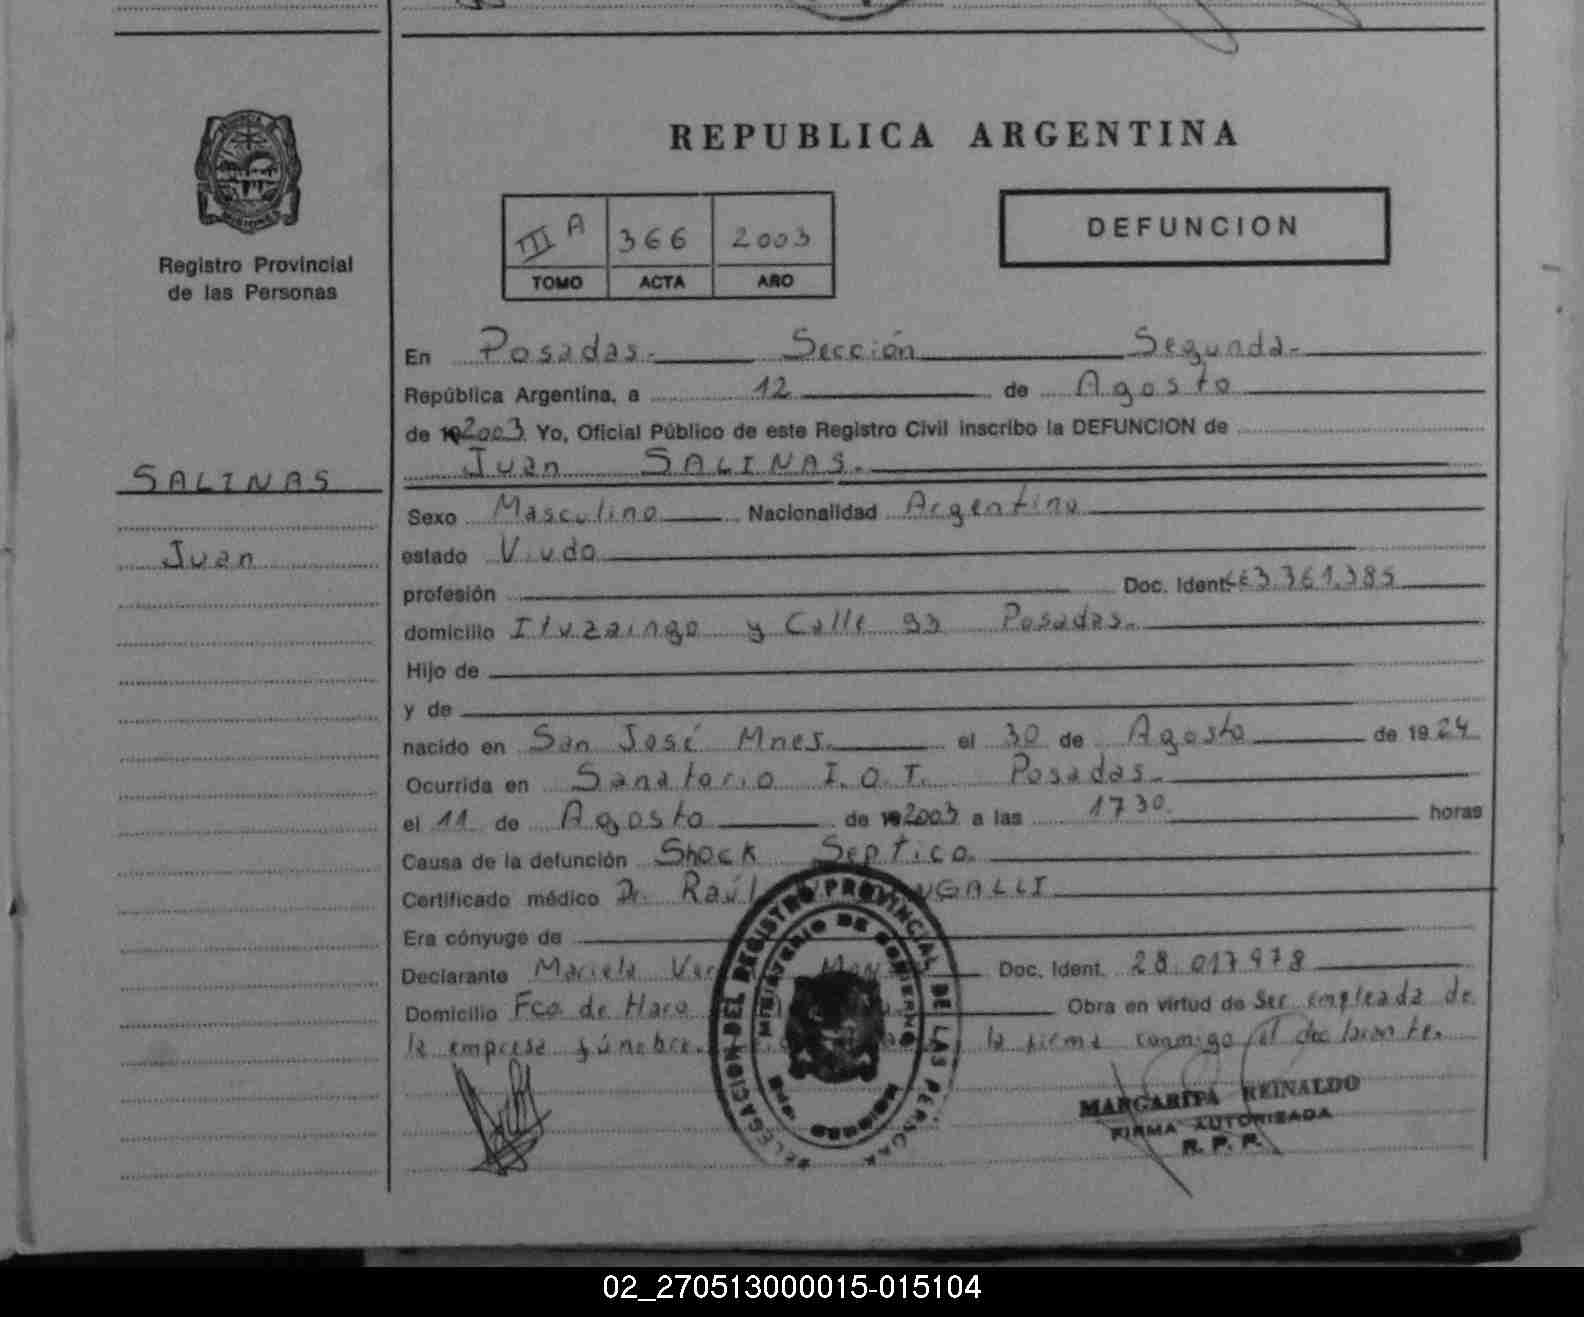 REPUBLICA ARGENTINA
Registro Provincial
de las Personas
III A 366 2003
TOMO ACTA AÑO
DEFUNCION
SALINAS
Juan
En Posadas.- Sección Segunda-
República Argentina, a 12 de Agosto
de 192003 Yo, Oficial Público de este Registro Civil inscribo la DEFUNCION de
Juan SALINAS.
Sexo Masculino Nacionalidad Argentino
estado Viudo
profesión Doc. Ident. 3.361.385
domicilio Ituzaingo y Calle 93 Posadas.-
Hijo de
y de
nacido en San José Mnes. el 30 de Agosto de 1924
Ocurrida en Sanatorio I.O.T. Posadas.-
el 11 de Agosto de 192003 a las 1730 horas
Causa de la defunción Shock Septico.
Certificado médico Dr. Raúl
Era cónyuge de
Declarante Mariela Doc. Ident. 28.017.978
Domicilio Fco. de Haro Obra en virtud de Ser empleada de
la empresa fúnebre. la firma conmigo el declarante.
DELEGACION DEL REGISTRO PROVINCIAL DE LAS PERSONAS
MINISTERIO DE GOBIERNO
MISIONES
MARGARITA REINALDO
FIRMA AUTORIZADA
R. P. P.
02_270513000015-015104